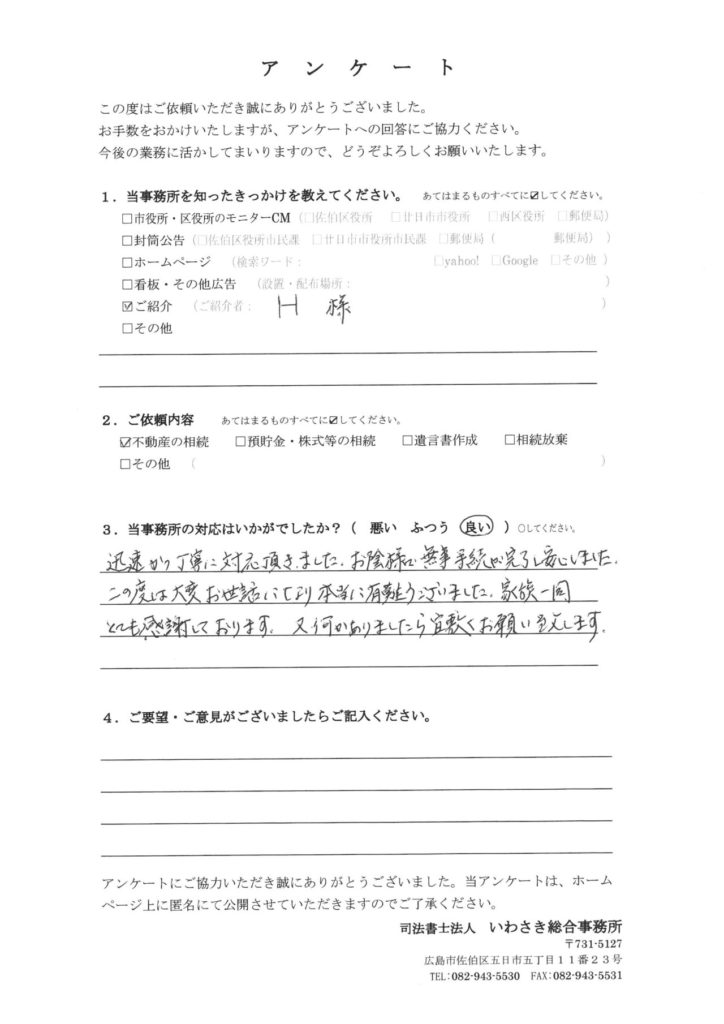 アンケート
この度はご依頼いただき誠にありがとうございました。
お手数をおかけいたしますが、アンケートへの回答にご協力ください。
今後の業務に活かしてまいりますので、どうぞよろしくお願いいたします。
１．当事務所を知ったきっかけを教えてください。 あてはまるものすべてに☑してください。
□市役所・区役所のモニターCM（□佐伯区役所 □廿日市市役所 □西区役所 □郵便局）
□封筒公告（□佐伯区役所市民課 □廿日市市役所市民課 □郵便局（ 郵便局））
□ホームページ （検索ワード： □yahoo! □Google □その他）
□看板・その他広告 （設置・配布場所： ）
☑ご紹介 （ご紹介者： H 様 ）
□その他
２．ご依頼内容 あてはまるものすべてに☑してください。
☑不動産の相続 □預貯金・株式等の相続 □遺言書作成 □相続放棄
□その他 （ ）
３．当事務所の対応はいかがでしたか？（ 悪い ふつう 良い ）○してください。
迅速かつ丁寧に対応頂きました。お陰様で無事手続が完了し安心しました。
この度は大変お世話になり本当に有難うございました。家族一同
とても感謝しております。又何かありましたら宜敷くお願い致します。
４．ご要望・ご意見がございましたらご記入ください。
アンケートにご協力いただき誠にありがとうございました。当アンケートは、ホーム
ページ上に匿名にて公開させていただきますのでご了承ください。
司法書士法人 いわさき総合事務所
〒731-5127
広島市佐伯区五日市五丁目１１番２３号
TEL:082-943-5530 FAX:082-943-5531